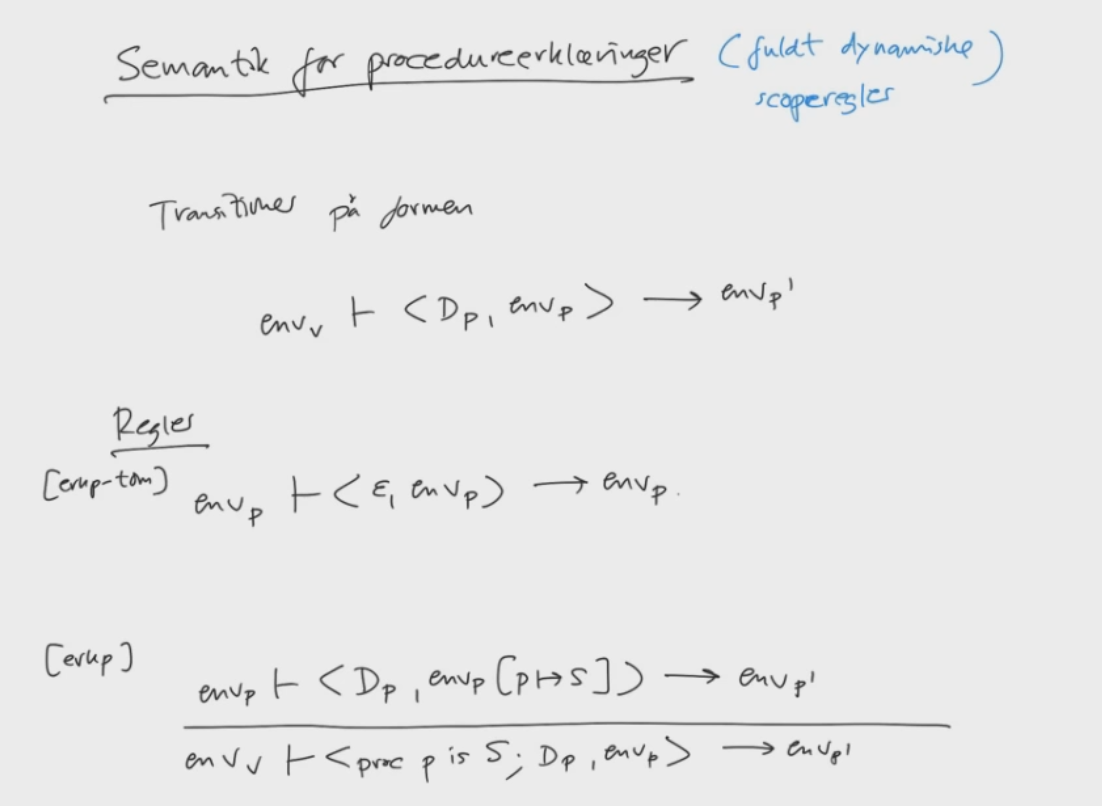 Semantik for procedureerklæringer (fuldt dynamiske)
scoperegler
Transitioner på formen
env_v ⊢ <D_p, env_p> → env_p'
Regler
[erkp-tom] env_p ⊢ <ε, env_p> → env_p.
[erkp]
env_p ⊢ <D_p, env_p[p ↦ S]> → env_p'
env_v ⊢ <proc p is S; D_p, env_p> → env_p'